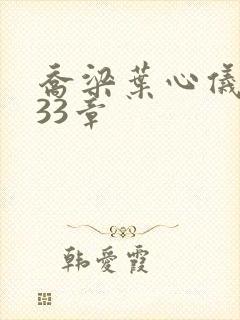 喬梁葉心儀
33章
韩愛霞